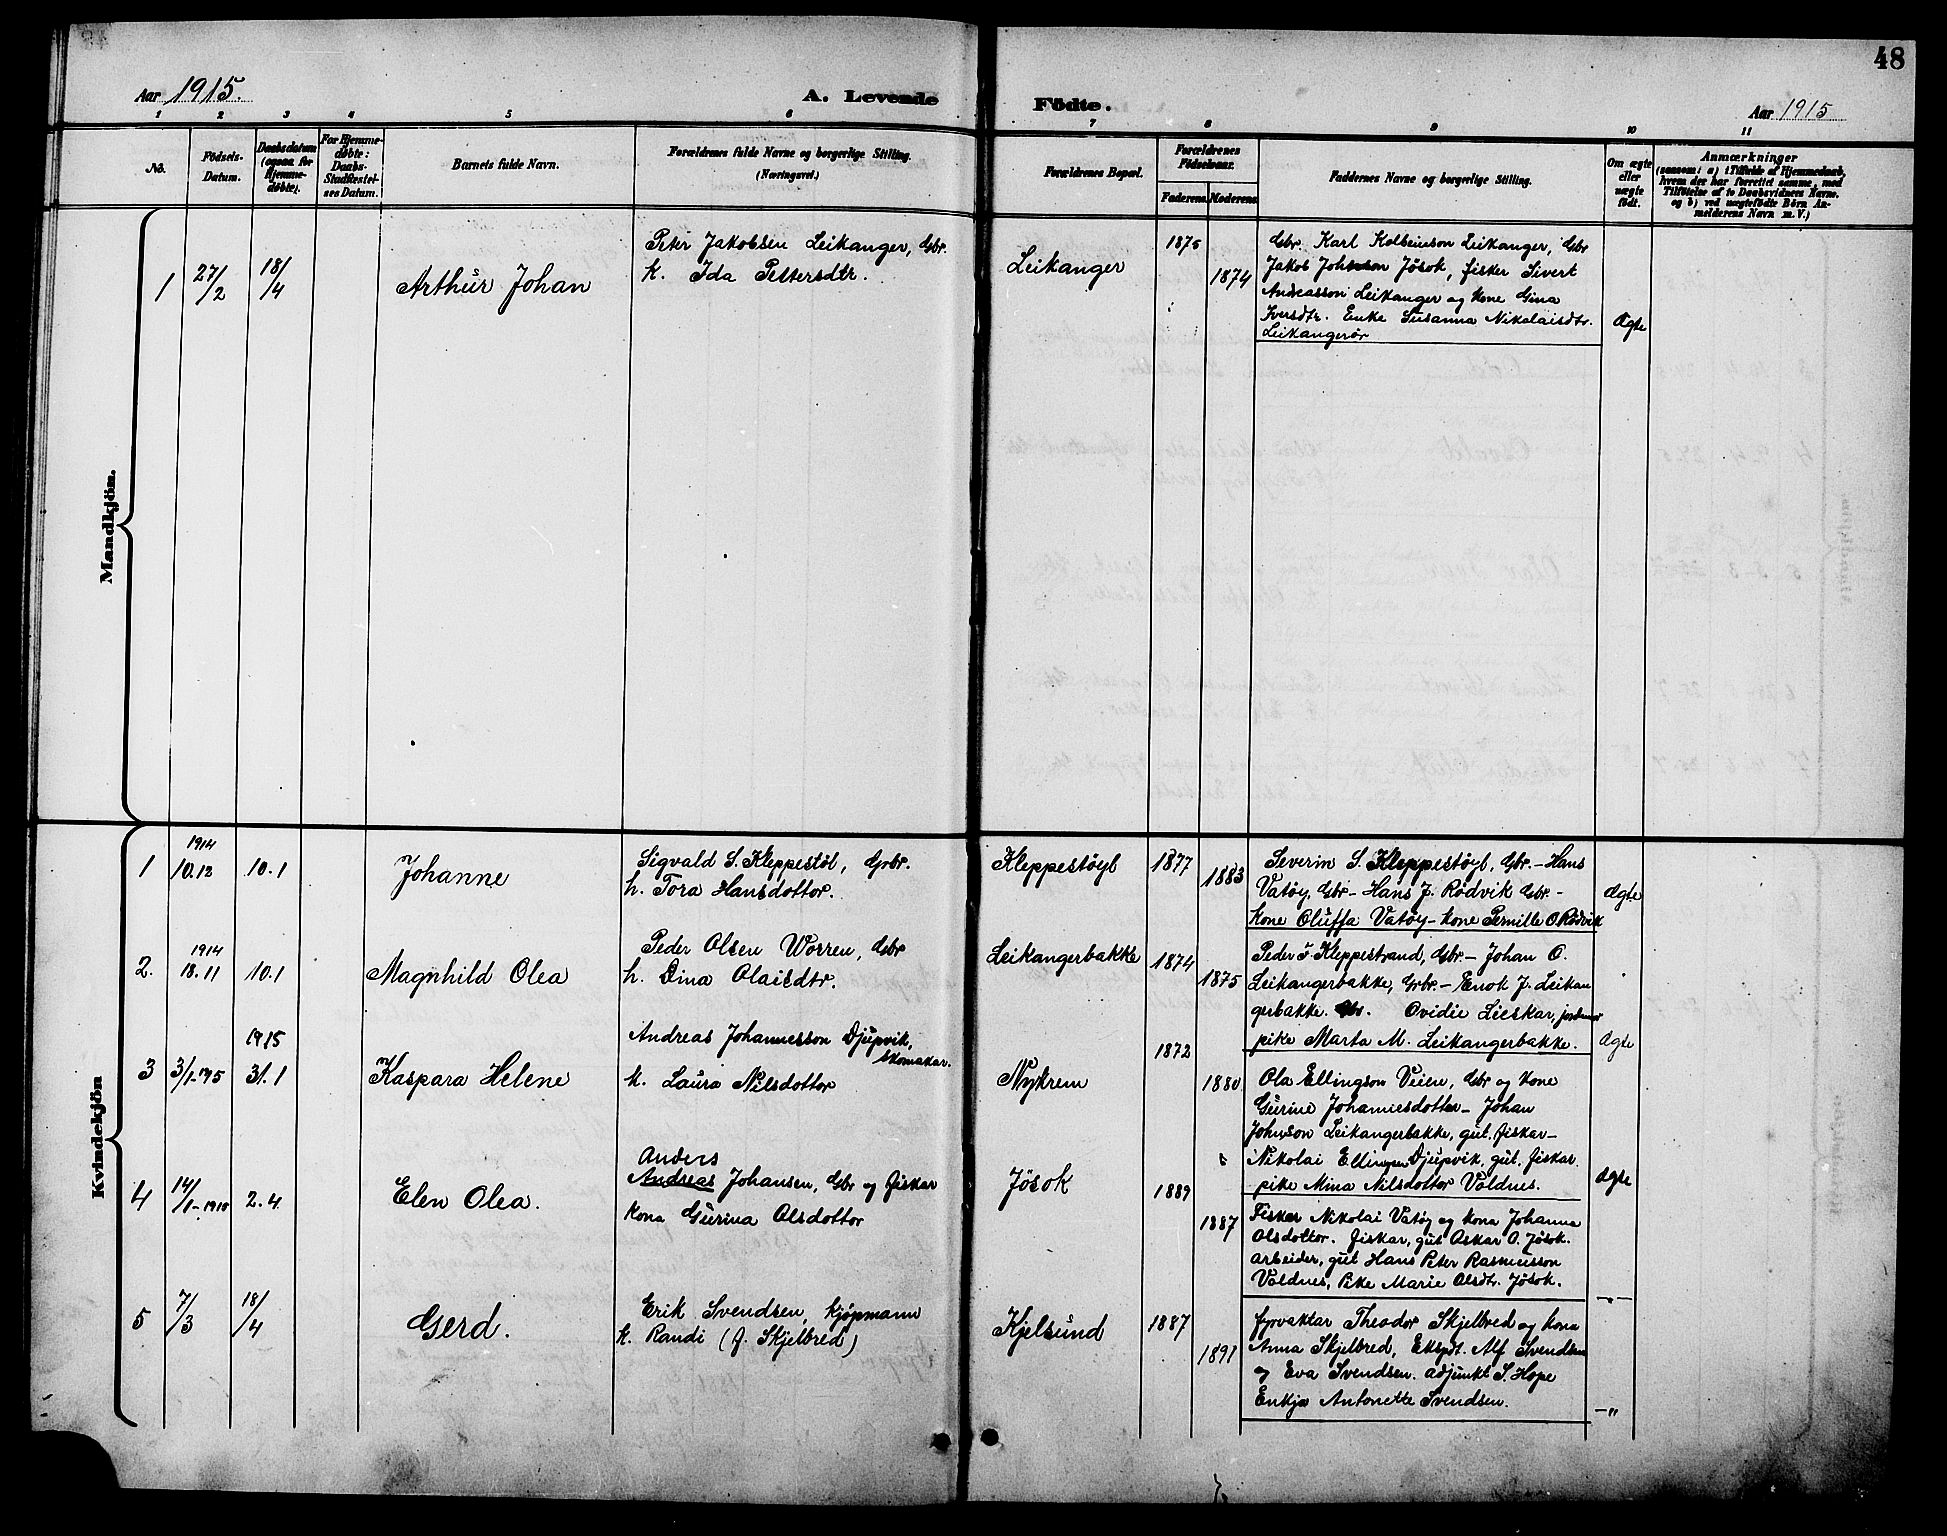 48
Aar 1915.
A. Levende
Födte.
Aar 1915
1 2 3 4 5 6 7 8 9 10 11
No.
Födsels-
Datum.
Daabsdatum
(ogsaa for
Hjemme-
døbte).
For Hjemme-
døbte:
Daabs-
Stadfæstel-
ses Datum.
Barnets fulde Navn.
Forældrenes fulde Navne og borgerlige Stilling.
(Næringsvei.)
Forældrenes Bopæl.
Forældrenes
Födselsaar.
Faderens
Moderens
Faddernes Navne og borgerlige Stilling.
Om ægte
eller
uægte
födt.
Anmærkninger
(saasom: a) i Tilfælde af Hjemmedaab,
hvem der har forrettet samme, med
Tilføielse af to Daabsvidners Navne,
og b) ved uægtefødte Börn An-
melderens Navn m. V.)
Mandkjön.
1
27/2
18/4
Arthur Johan
Peter Jakobsen Leikanger, Gbr.
k. Ida Pettersdtr.
Leikanger
1875
1874
Gbr. Karl Kolbeinson Leikanger, Gbr
Jakob Johnson Jösok, fisker Sivert
Andreasson Leikanger og kone Gina
Iversdtr. Enke Susanna Nikolaisdtr.
Leikangerör
Ægte
Kvindekjön
1
1914
10.12
10.1
Johanne
Sigvald S. Kleppestöl, Grbr.
h. Tora Hansdottor.
Kleppestøyl
1877
1883
Severin S. Kleppestøyl, Gbr. - Hans
Vatøy, Gbr - Hans J. Rødvik Gbr. -
kone Oluffa Vatøy - kone Pernille O Rødvik
Ægte
2.
1914
18.11
10.1
Magnhild Olea
Peder Olsen Worren, Gbr
h. Dina Olaisdtr.
Leikangerbakke
1874
1875
Peder I. Kleppestrand, Gbr - Johan O.
Leikangerbakke, Grbr. - Enok J. Leikan
gerbakke. Gbr. Ovidie Lieskar,
pike Marta M. Leikangerbakke.
Ægte
3
3/1-1915
1915
31.1
Kaspara Helene
Andreas Johannesson Djupvik,
skomakar.
k. Laura Nilsdottor
Nykrem
1872
1880
Ola Ellingson Veien, Gbr og kone
Gurine Johannesdotter - Johan
Johnson Leikangerbakke, gut. fiskar -
Nikolai Ellingsen Djupvik, gut. fiskar.
pike Mina Nilsdottor Voldnes.
Ægte
4
14/1-1915
2.4.
Elen Olea.
Anders
Andreas Johansen, Gbr og fiskar
kona Gurina Olsdottor
Jösok
1889
1887
Fisker Nikolai Vatøy og kona Johanna
Olsdottor. fiskar, gut Oskar O. Jösok.
arbeider, gut Hans Peter Rasmusson
Voldnes, Pike Marie Olsdtr. Jösok.
—"—
5
7/3
18/4
Gerd.
Erik Svendsen, kjøpmann
k. Randi (f. Skjelbred)
Kjelsund
1887
1891
fyrvaktar Theodor Skjelbred og kona
Anna Skjelbred, Ekspdt. Alf Svendsen
og Eva Svendsen. adjunkt S. Hope
Enkja Antonette Svendsen.
—"